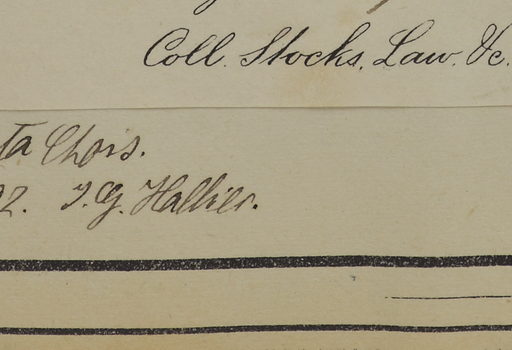 Coll. Stocks, Law. &c.
ta Chois.
92. J. G. Hallier.